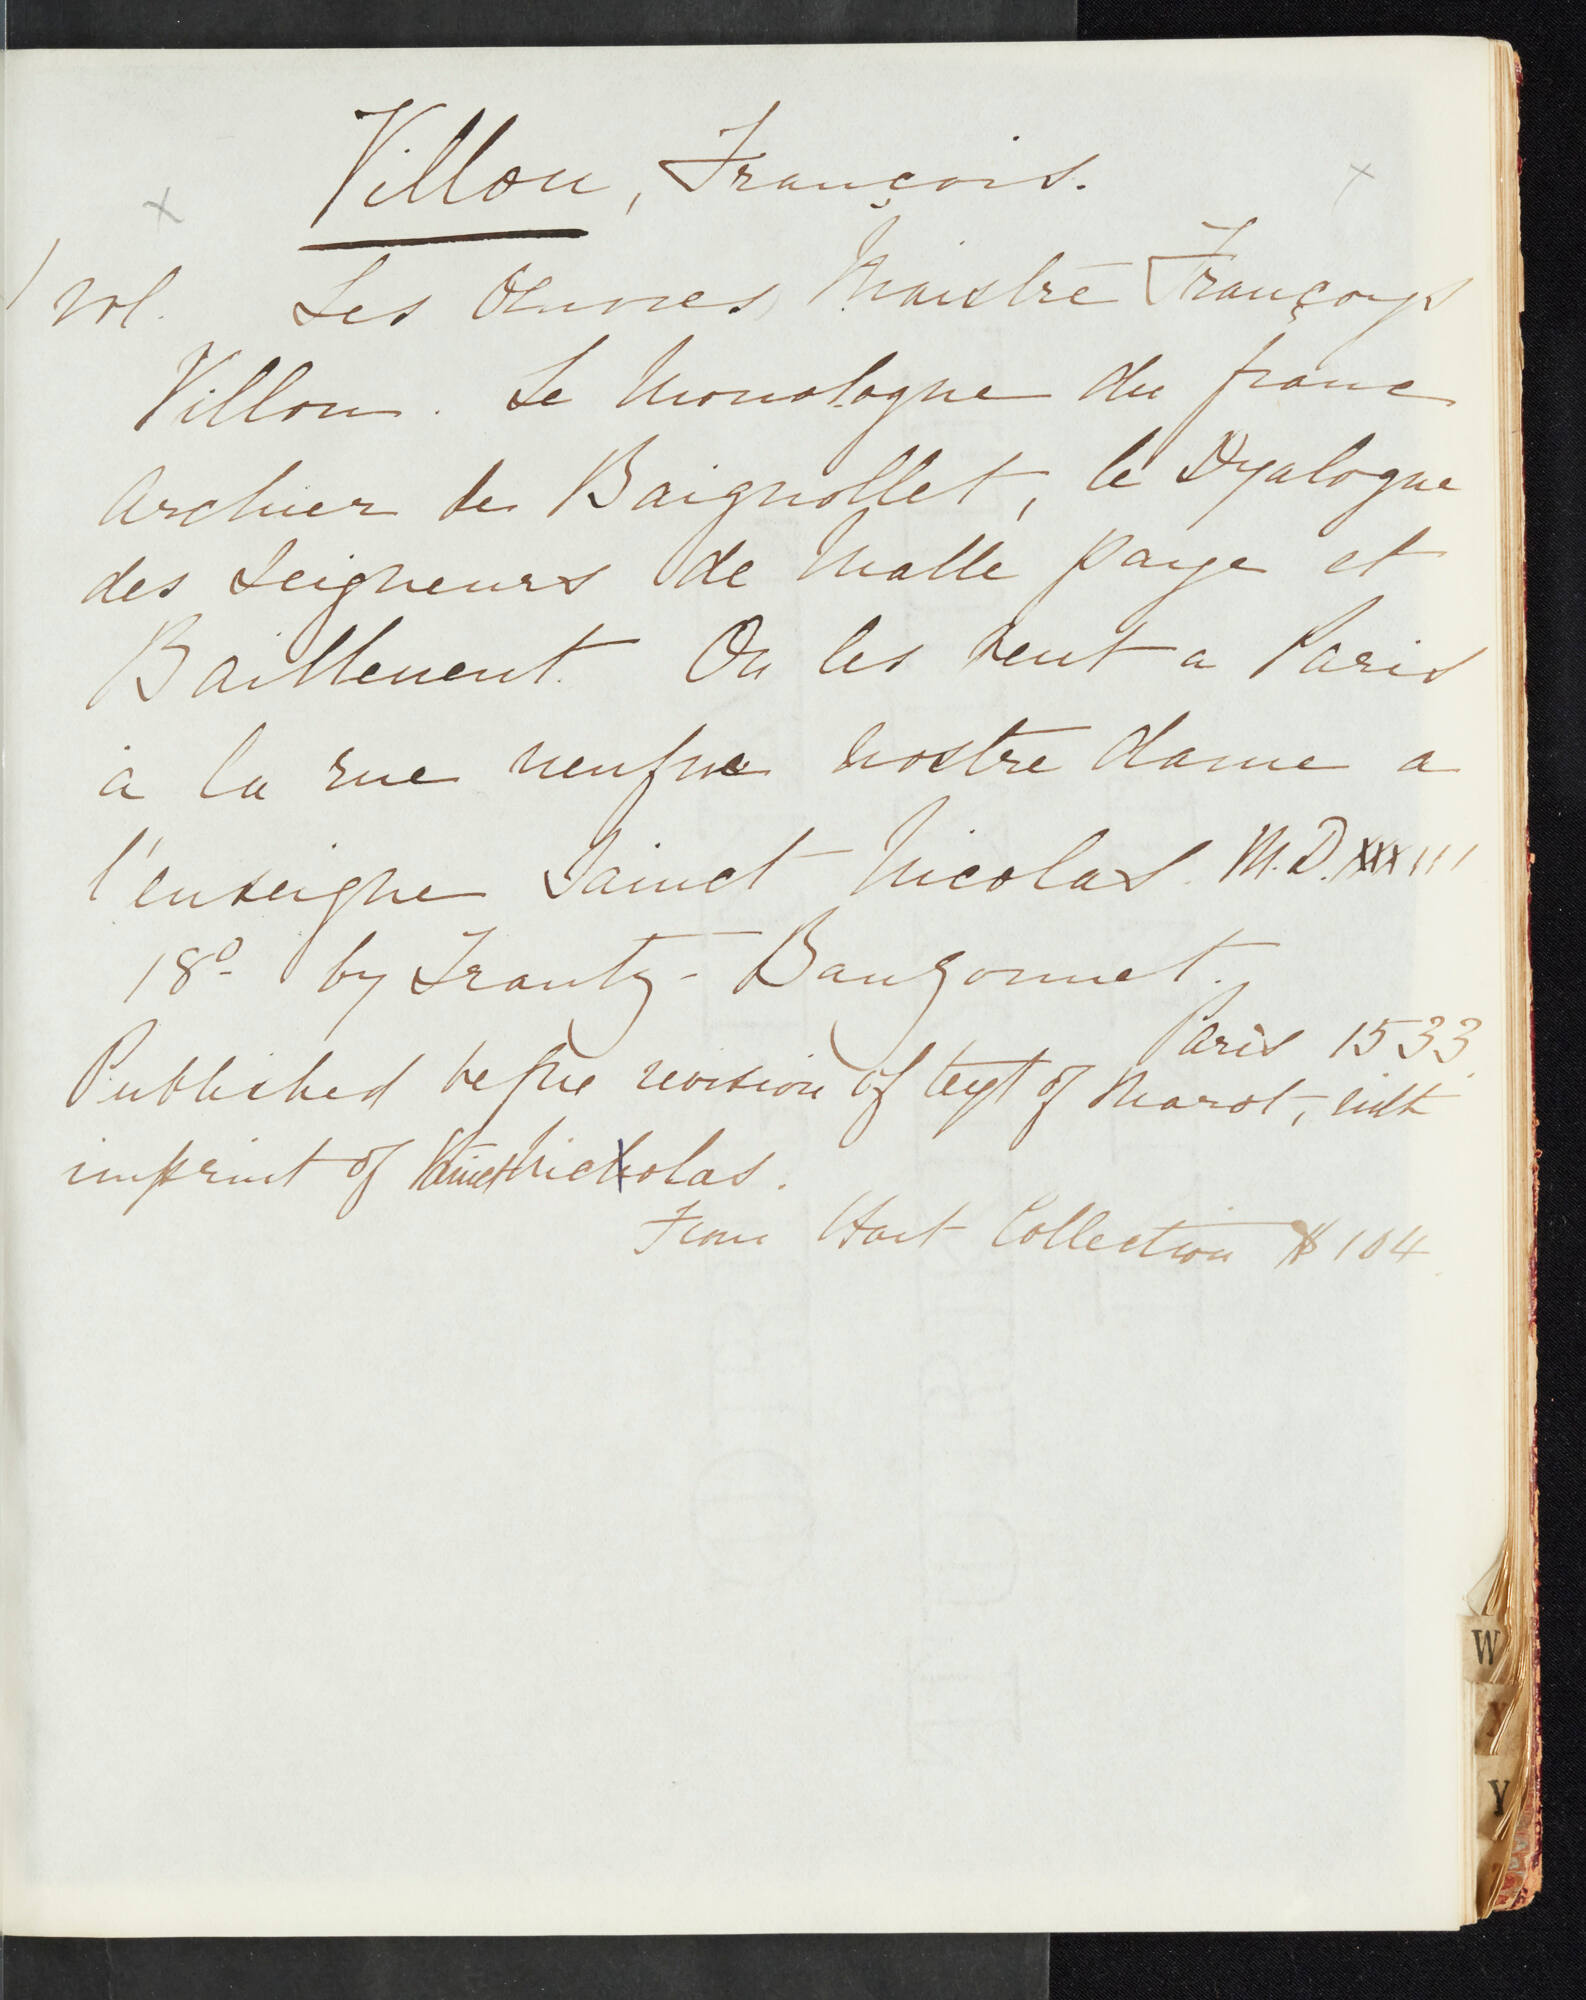 Villon, François.
1 vol. Les Œuvres Maistre Françoys
Villon. Le Monologue du franc
archier de Baignollet, le Dyalogue
des Seigneurs de Malle paye et
Baillevent. On les vent a Paris
à la rue neufve nostre dame a
l'enseigne Sainct Nicolas. M.D.XXXIII
18º by Trautz-Bauzonnet.
Paris 1533.
Published before revision of text of Marot, with
imprint of Sainct Nicholas.
From Hart Collection $104
W
X
Y